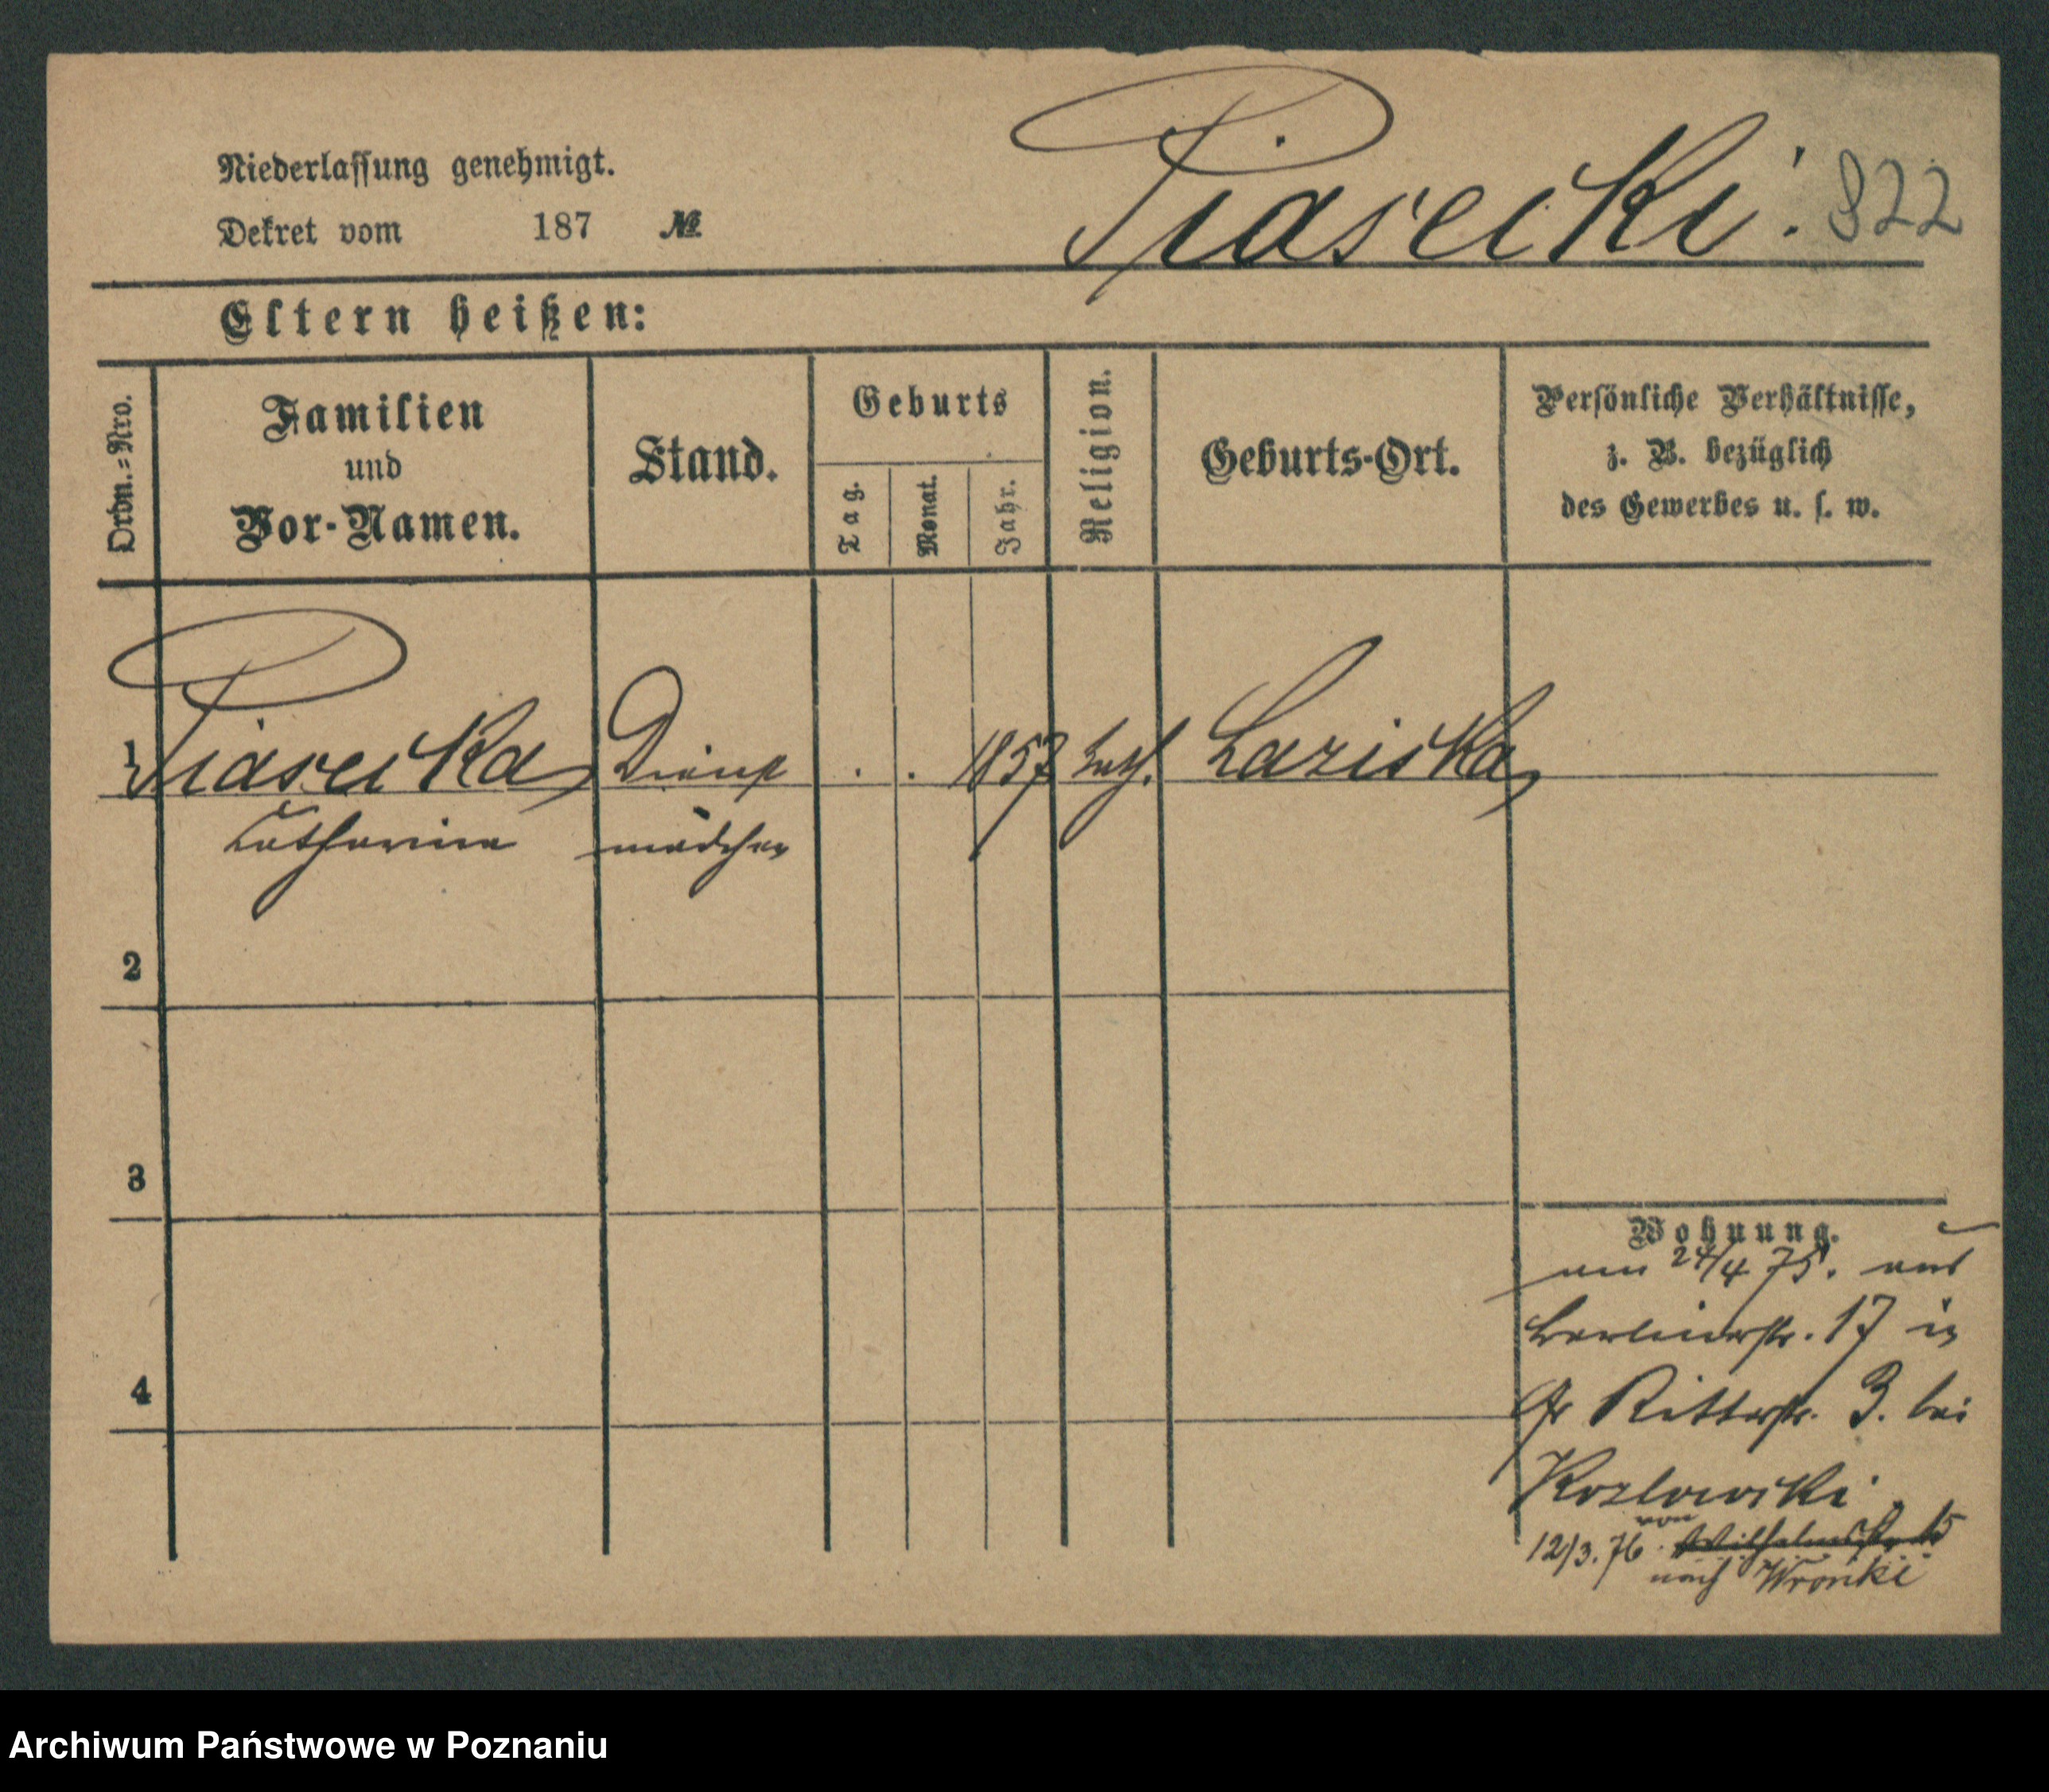 Niederlassung genehmigt.
Dekret vom 187 №
Piasecki. 822
Eltern heißen:
Ordn.=Nro.
Familien
und
Vor-Namen.
Stand.
Geburts
Tag.
Monat.
Jahr.
Religion.
Geburts-Ort.
Persönliche Verhältnisse,
z. B. bezüglich
des Gewerbes u. s. w.
1 Piasecka Dienst . . 1857 kath. Laziska
Catharina mädchen
2
3
4
Wohnung.
am 24/4 75. aus
Berlinerstr. 17 in
Gr Ritterstr. 3. bei
Kozlowski
von
12/3. 76. Wilhelmstr. 15
nach Wronke
Archiwum Państwowe w Poznaniu